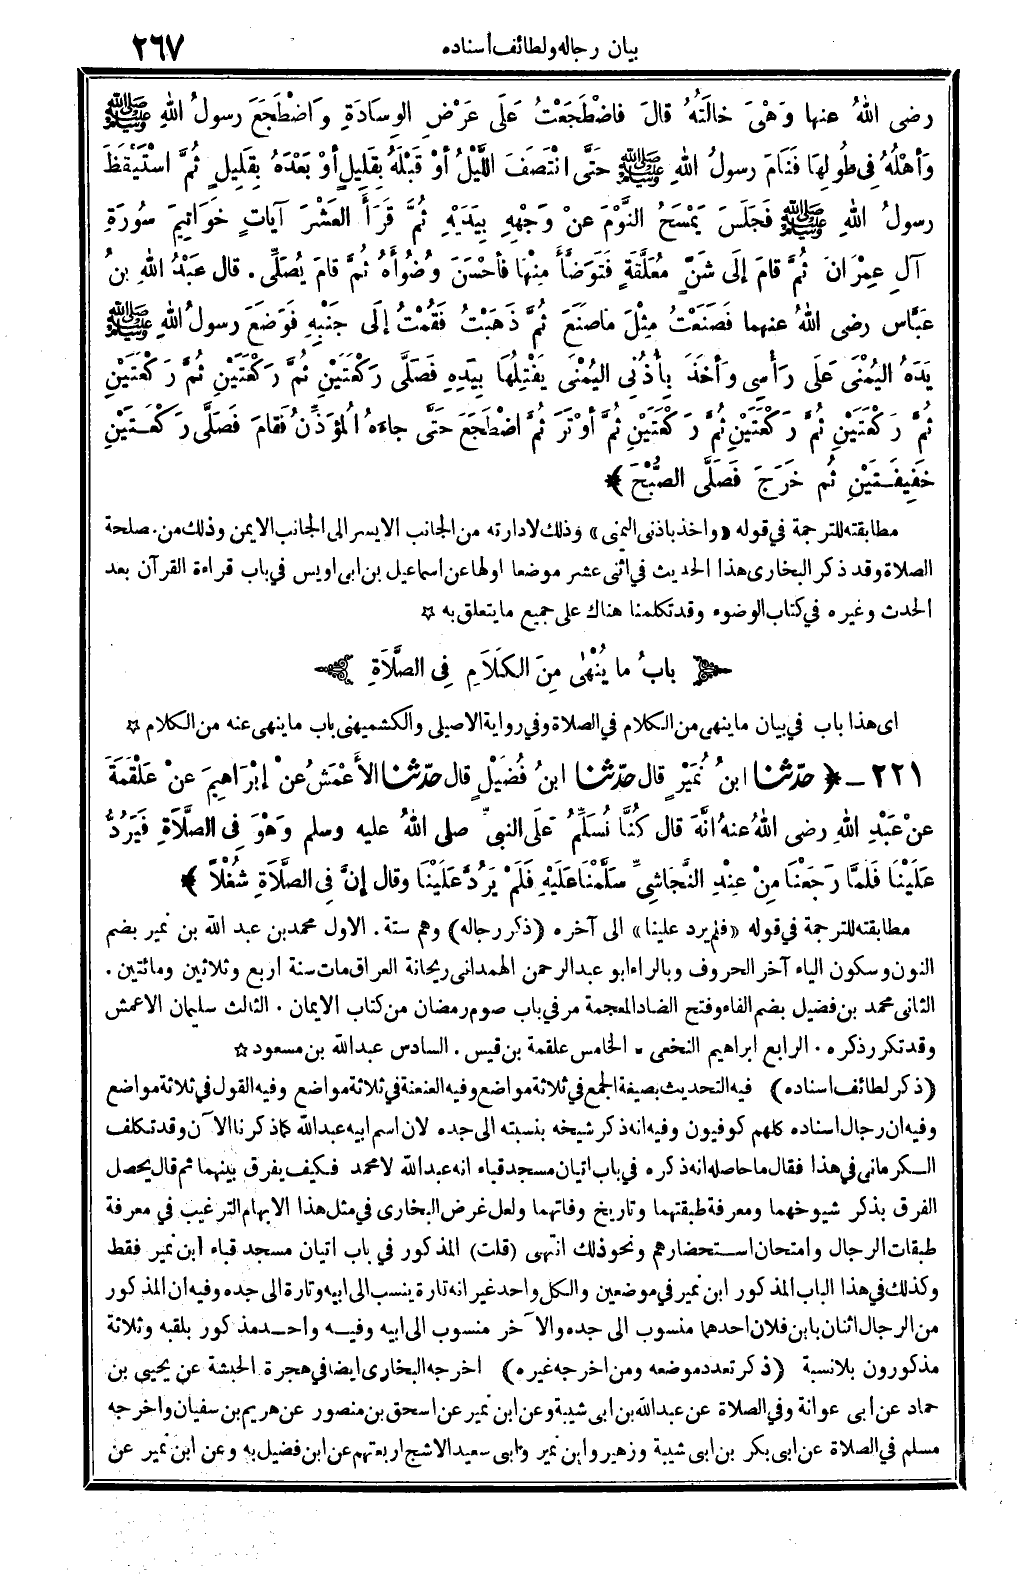 بيان رجاله ولطائف أسناده ٢٦٧
رضى اللهُ عنها وَهْىَ خالَتُهُ قالَ فاضْطَجَعْتُ عَلَى عَرْضِ الوِسادَةِ وَاضْطَجَعَ رسولُ اللهِ ﷺ
وَأهْلُهُ فِى طُولِها فَنَامَ رسولُ اللهِ ﷺ حتَّى انْتَصَفَ اللَّيْلُ أوْ قَبْلَهُ بِقَلِيلٍ أوْ بَعْدَهُ بِقَلِيلٍ ثُمَّ اسْتَيْقَظَ
رسولُ اللهِ ﷺ فَجَلَسَ يَمْسَحُ النَّوْمَ عنْ وَجْهِهِ بِيَدَيْهِ ثُمَّ قَرَأَ العَشْرَ آياتٍ خَوَاتِيمَ سُورَةِ
آلِ عِمْرَانَ ثُمَّ قامَ إلَى شَنٍّ مُعَلَّقَةٍ فَتَوَضَّأَ مِنْها فَأحْسَنَ وُضُوأَهُ ثُمَّ قامَ يُصَلِّى. قال عَبْدُ اللهِ بنُ
عَبَّاس رضى اللهُ عنهما فَصَنَعْتُ مِثْلَ ماصَنَعَ ثُمَّ ذَهَبْتُ فَقُمْتُ إلَى جَنْبِهِ فَوَضَعَ رسولُ اللهِ ﷺ
يَدَهُ اليُمْنَى عَلَى رَأْسِى وَأخَذَ بِأُذُنِى اليُمْنَى يَفْتِلُهَا بِيَدِهِ فَصَلَّى رَكْعَتَيْنِ ثُمَّ رَكْعَتَيْنِ ثُمَّ رَكْعَتَيْنِ
ثُمَّ رَكْعَتَيْنِ ثُمَّ رَكْعَتَيْنِ ثُمَّ رَكْعَتَيْنِ ثُمَّ أوْتَرَ ثُمَّ اضْطَجَعَ حَتَّى جاءَهُ المُؤَذِّنُ فَقامَ فَصَلَّى رَكْعَتَيْنِ
خَفِيفَتَيْنِ ثُم خَرَجَ فَصَلَّى الصُّبْحَ ﴾
مطابقته للترجمة فى قوله «واخذ باذنى اليمنى» وذلك لادارته من الجانب الايسر الى الجانب الايمن وذلك من صلحة
الصلاة وقد ذكر البخارى هذا الحديث فى اثنى عشر موضعا اولها عن اسماعيل بن ابى اويس فى باب قراءة القرآن بعد
الحدث وغيره فى كتاب الوضوء وقد تكلمنا هناك على جميع ما يتعلق به ☆
بابُ ما يُنْهٰى مِنَ الكَلَامِ فِى الصَّلَاةِ
اى هذا باب فى بيان ما ينهى من الكلام فى الصلاة وفى رواية الاصيلى والكشميهنى باب ما ينهى عنه من الكلام ☆
٢٢١ ــ ﴿ حدّثنا ابنُ نُمَيْرٍ قال حدّثنا ابنُ فُضَيْلٍ قال حدّثنا الأعْمَشُ عنْ إبْرَاهِيمَ عنْ عَلْقَمَةَ
عنْ عَبْدِ اللهِ رضى اللهُ عنهُ أنَّهُ قال كُنَّا نُسَلِّمُ عَلَى النبيِّ صلى اللهُ عليه وسلم وَهْوَ فِى الصَّلَاةِ فَيَرُدُّ
عَلَيْنَا فَلمَّا رَجَعْنَا مِنْ عِنْدِ النَّجاشِىِّ سَلَّمْنا عَلَيْهِ فَلَمْ يَرُدَّ عَلَيْنَا وقال إنَّ فِى الصَّلَاةِ شُغْلاً ﴾
مطابقته للترجمة فى قوله «فلم يرد علينا» الى آخره (ذكر رجاله) وهم ستة. الاول محمد بن عبد الله بن نمير بضم
النون وسكون الياء آخر الحروف وبالراء ابو عبد الرحمن الهمدانى ريحانة العراق مات سنة اربع وثلاثين ومائتين.
الثانى محمد بن فضيل بضم الفاء وفتح الضاد المعجمة مر فى باب صوم رمضان من كتاب الايمان. الثالث سليمان الاعمش
وقد تكرر ذكره. الرابع ابراهيم النخعى. الخامس علقمة بن قيس. السادس عبد الله بن مسعود ☆
(ذكر لطائف اسناده) فيه التحديث بصيغة الجمع فى ثلاثة مواضع وفيه العنعنة فى ثلاثة مواضع وفيه القول فى ثلاثة مواضع
وفيه ان رجال اسناده كلهم كوفيون وفيه انه ذكر شيخه بنسبته الى جده لان اسم ابيه عبد الله كما ذكرنا الآن وقد تكلف
الكرمانى فى هذا فقال ما حاصله انه ذكره فى باب اتيان مسجد قباء انه عبد الله لا محمد فكيف يفرق بينهما ثم قال يحصل
الفرق بذكر شيوخهما ومعرفة طبقتهما وتاريخ وفاتهما ولعل غرض البخارى فى مثل هذا الابهام الترغيب فى معرفة
طبقات الرجال وامتحان استحضارهم ونحو ذلك انتهى (قلت) المذكور فى باب اتيان مسجد قباء ابن نمير فقط
وكذلك فى هذا الباب المذكور ابن نمير فى موضعين والكل واحد غير انه تارة ينسب الى ابيه وتارة الى جده وفيه ان المذكور
من الرجال اثنان بابن فلان احدهما منسوب الى جده والآخر منسوب الى ابيه وفيه واحد مذكور بلقبه وثلاثة
مذكورون بلا نسبة (ذكر تعدد موضعه ومن اخرجه غيره) اخرجه البخارى ايضا فى هجرة الحبشة عن يحيى بن
حماد عن ابى عوانة وفى الصلاة عن عبد الله بن ابى شيبة وعن ابن نمير عن اسحق بن منصور عن هريم بن سفيان واخرجه
مسلم فى الصلاة عن ابى بكر بن ابى شيبة وزهير وابن نمير وابى سعيد الاشج اربعتهم عن ابن فضيل به وعن ابن نمير عن